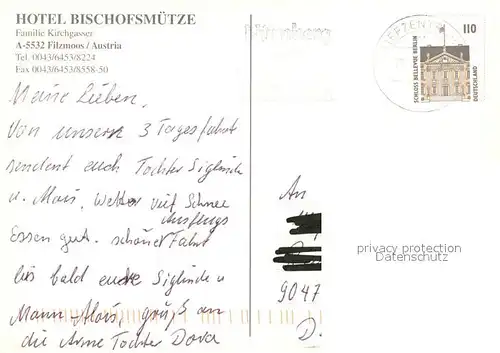 HOTEL BISCHOFSMÜTZE
Familie Kirchgasser
A-5532 Filzmoos / Austria
Tel. 0043/6453/8224
Fax 0043/6453/8558-50
Meine Lieben,
Von unsere 3 Tagesfahrt
sendent euch Tochter Siglinde
u. Alois, Wetter viel Schnee
Ausflugs
Essen gut. schöner Fahrt
bis bald eure Siglinde u
Mann-Alois, gruß an
die Arme Tochter Dora
BRIEFZENTRUM
110
SCHLOSS BELLEVUE BERLIN
DEUTSCHLAND
An
9047
D.
privacy protection
Datenschutz